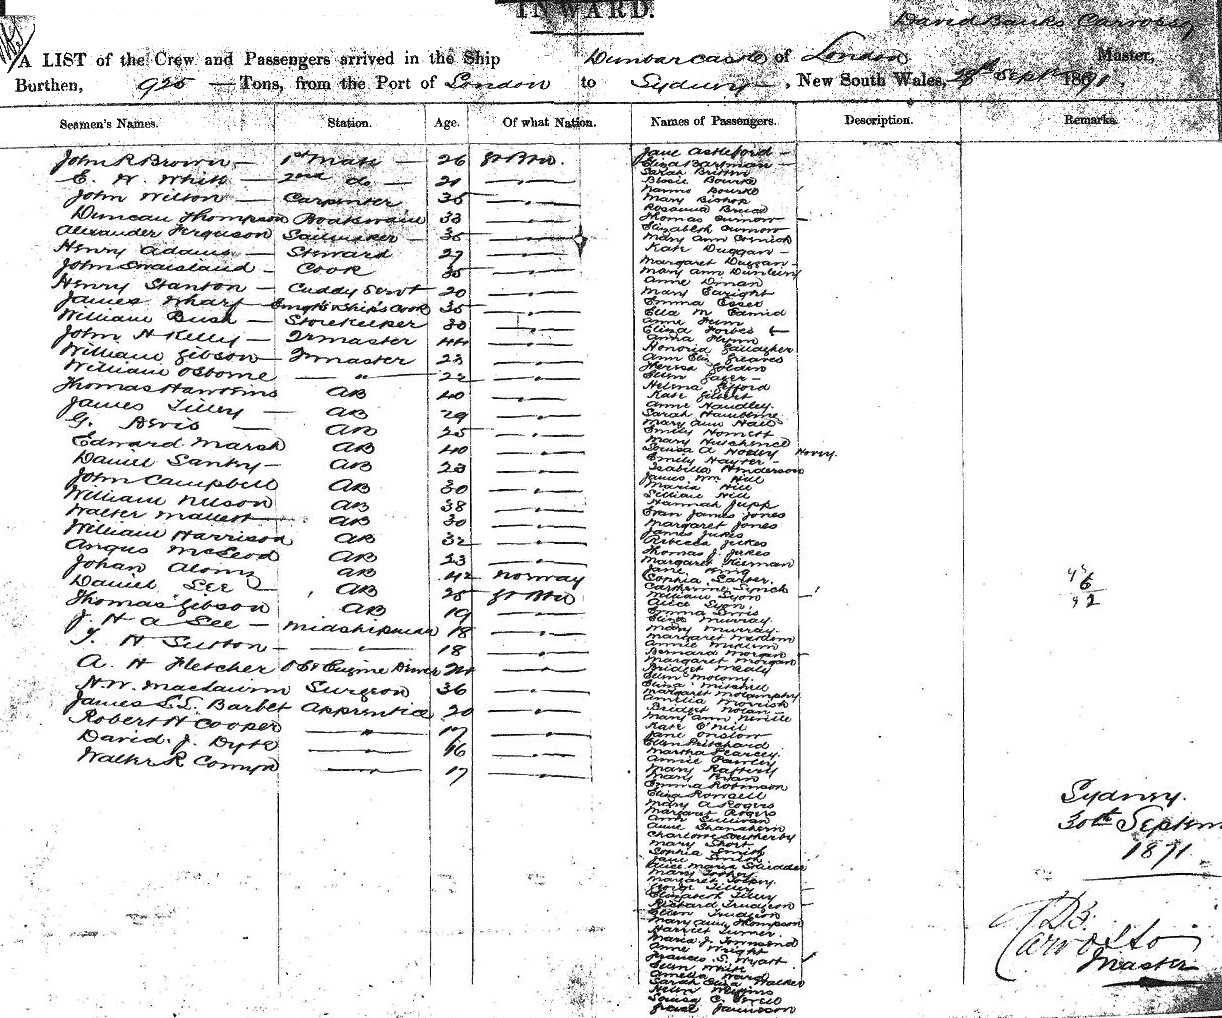 INWARD.
David Banks Carvosso
A LIST of the Crew and Passengers arrived in the Ship Dunbar Castle of London Master,
Burthen, 925 Tons, from the Port of London to Sydney, New South Wales, 28th Sept 1871.
Seamen's Names. Station. Age. Of what Nation. Names of Passengers. Description. Remarks.
John R Brown 1st Mate 26 Gt Btn.
E. W. White 2nd do 21 "
John Wilton Carpenter 35 "
Duncan Thompson Boatswain 33 "
Alexander Ferguson Sailmaker 35 "
Henry Adams Steward 27 "
John Swaisland Cook 35 "
Henry Stanton Cuddy Servt 20 "
James Wharf Emgts & Ship's Cook 35 "
William Bush Storekeeper 30 "
John H Kelly Qrmaster 44 "
William Gibson Qrmaster 23 "
William Osborne " 22 "
Thomas Hawkins AB 40 "
James Tilley AB 29 "
G. Bevis AB 25 "
Edward Marsh AB 40 "
Daniel Santry AB 23 "
John Campbell AB 30 "
William Nelson AB 38 "
Walter Mallett AB 30 "
William Harrison AB 32 "
Angus McLeod AB 23 "
Johan AB 42 Norway
Daniel Lee AB 25 Gt Btn
Thomas Gibson AB 19 "
J. H a Lee Midshipman 18 "
T. H Sutton 18 "
A. H Fletcher Engine Driver 24 "
H. W. Maclaurin Surgeon 36 "
James S. S. Barbet Apprentice 20 "
Robert H Cooper " 17 "
David J. Dyte " 16 "
Walter R Comyn " 17 "
Jane Astleford
Eliza Bartman
Sarah Britton
Rosie Bourke
Nanno Bourke
Mary Bishop
Thomas Curnow
Elizabeth Curnow
Mary Ann Cormick
Kate Duggan
Margaret Duggan
Mary Ann Dunleivy
Anne Dinan
Mary Enright
Emma Essex
Ella M
Eliza Forbes
Anna Flynn
Honoria Gallagher
Ann Eliz Greaves
Theresa Golden
Ellen Gager
Helena Gifford
Kate Gilbert
Anne Handley
Mary Ann Hall
Emily Howett
Louisa A Hovey Hovey.
Emily Hayter
Isabella Henderson
James Wm Hill
Maria Hill
Lillian Hill
Hannah Jupp
Evan James Jones
Margaret Jones
James Jukes
Rebecca Jukes
Thomas J. Jukes
Margaret Kiernan
Jane King
Catherine Lynch
William Lyon
Alice Lyon
Eliza Murray
Mary Murray
Bernard Morgan
Margaret Morgan
Bridget Mealy
Ellen Molony
Eliza Mitchell
Amelia Morrish
Bridget Nolan
Mary Ann Neville
Kate O'Neil
Jane Onslow
Ellen Pritchard
Martha Pearcey
Annie Pawley
Mary Rafferty
Mary Ryan
Emma Robinson
Eliza Rowsell
Mary A Rogers
Margaret Rogers
Ann Sullivan
Charlotte Southerby
Mary Short
Sophia Smith
Jane Smith
Alice Maria Skidder
George Tilley
Elizabeth Tilley
Richard Trudgeon
Ellen Trudgeon
Mary Ann Thompson
Harriet Turner
Maria J. Townsend
Anne Wright
Frances S. Wyatt
Ellen White
Amelia Ward
Sarah Eliza Walker
Helen Williams
Louisa C.
46
6
92
Sydney.
30th Septem
1871
D B.
Carvosso
Master